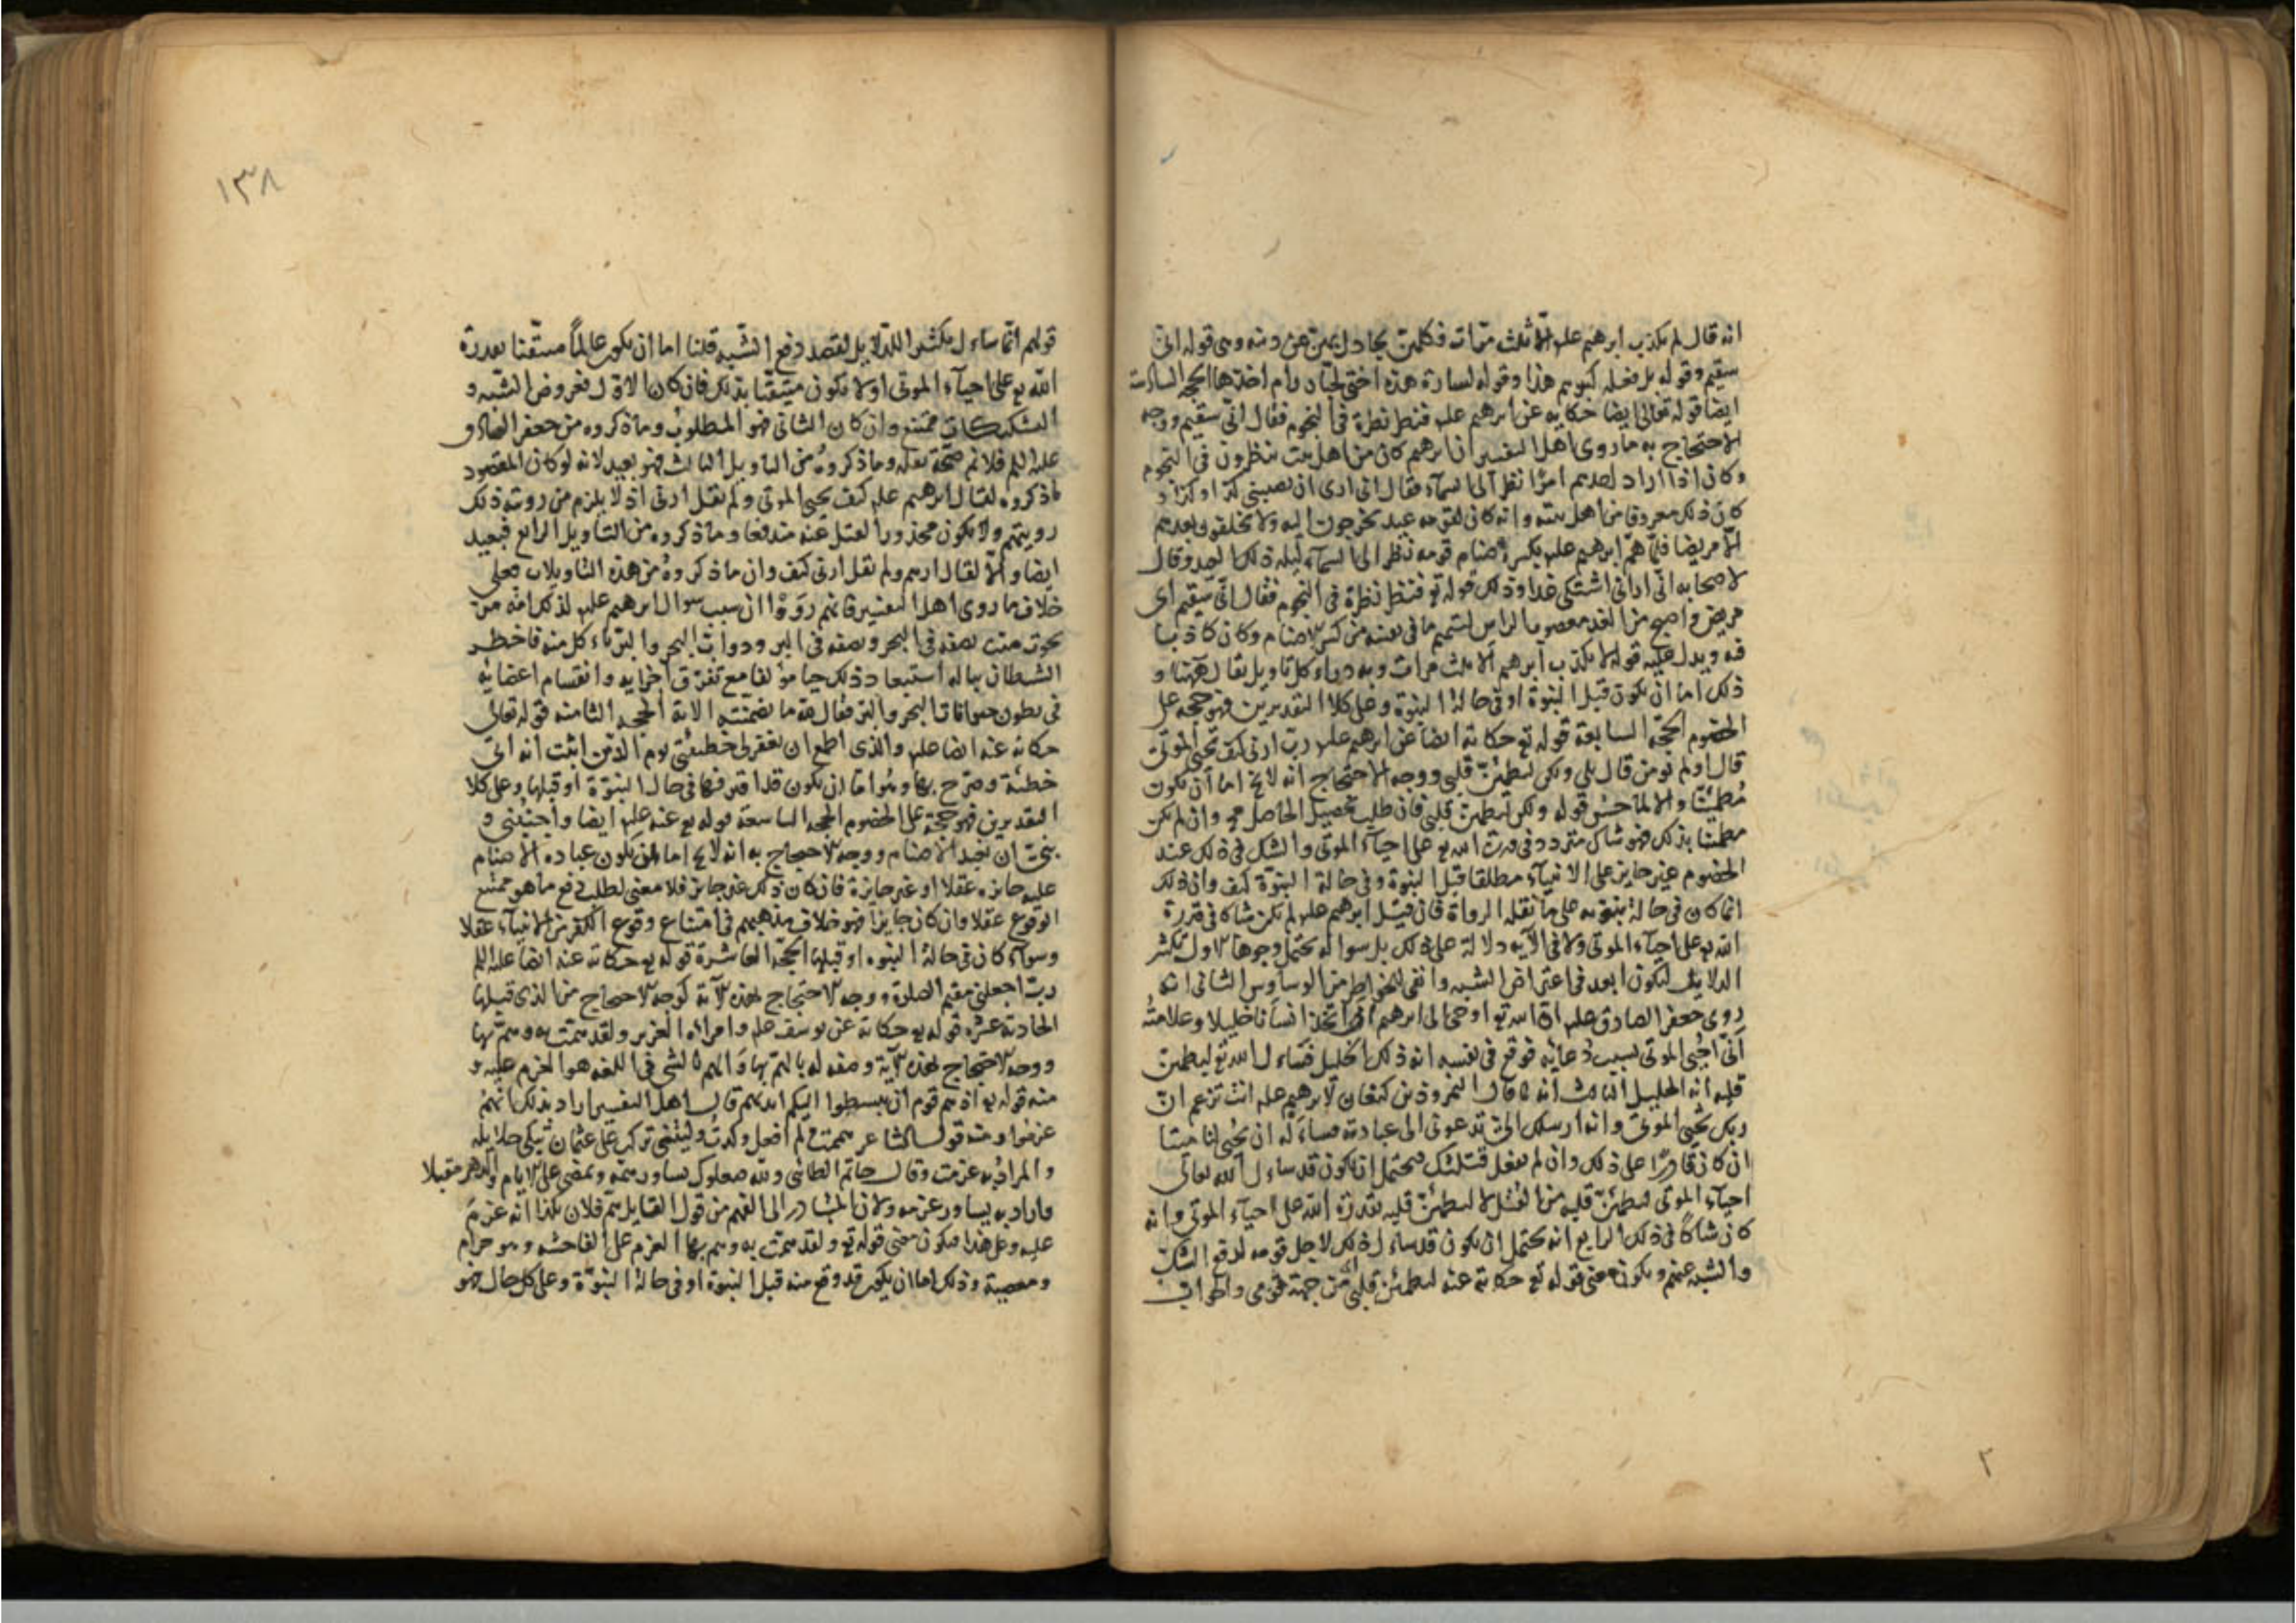 انه قال لم يكذب ابرهيم علم الا ثلث مرّات فكلهن يجادل بهن عن دينه وهى قوله انى
سقيم وقوله بل فعله كبيرهم هذا وقوله لسارة هذه اختى لجبار رام اخذها الحجه السادسة
ايضا قوله تعالى ايضا حكاية عن ابرهيم علم فنظر نظرة فى النجوم فقال انّى سقيم ووجه
الاحتجاج به ما روى اهل التفسير ان ابرهيم كان من اهل بيت ينظرون فى النجوم
وكان اذا اراد احدهم امرًا نظر الى السماء فقال انى ارى ان يصيبنى كذا وكذا و
كان ذلك معروفا من اهل بيته وانه كان لقومه عيد يخرجون اليه ولا يخلفون بعدهم
الا مريضا فلمّا همّ ابرهيم علم بكسر الاصنام قومه نظر الى السماء ليلة ذلك العيد وقال
لاصحابه انّى ارانى اشتكى غدا وذلك قوله تع فنظر نظرة فى النجوم فقال انّى سقيم اى
مريض واصبح من الغد معصوب الراس لتتميم ما فى نفسه من كسر الاصنام وكان كاذبا
فيه ويدل عليه قوله لا يكذب ابرهيم الا ثلث مرات وبه دراء كل تاويل يقال ههنا و
ذلك اما ان يكون قبل النبوة او فى حالة النبوة وعلى كلا التقديرين فهو حجه على
الخصوم الحجّه السابعة قوله تع حكاية ايضا عن ابرهيم علم ربّ ارنى كيف تحى الموتى
قال اولم تومن قال بلى ولكن ليطمئنّ قلبى ووجه الاحتجاج انه لا يخ امّا ان يكون
مطمئنّا والا لما حسن قوله ولكن ليطمئن قلبى فان طلب تحصيل الحاصل مح وان لم يكن
مطمئنا بذلك فهو شاك متردد فى قدرت الله تع على احياء الموتى والشك فى ذلك عند
الخصوم غير جايز على الانبياء مطلقا قبل النبوة وفى حالة النبوّة كيف وان ذلك
انما كان فى حالة نبوّته على ما نقله الرواة فان قيل ابرهيم علم لم يكن شاكا فى قدرة
الله تع على احياء الموتى ولا فى الآيه دلالة على ذلك بل سواله يحتمل وجوها الاول تكثر
الدلايل لتكون ابعد فى اعتراض الشبه وانفى للخواطر من الوساوس الثانى انه
روى جعفر الصادق علم انّ الله تع اوحى الى ابرهيم انى اتّخذ انسانا خليلا وعلامته
أنّى احيى الموتى بسبب دعايه فوقع فى نفسه انه ذلك الخليل فساءل الله تع ليطمئن
قلبه انه الخليل الثالث انه لما قال النمروذ بن كنعان لابرهيم علم انت تزعم انّ
ربك يحيى الموتى وانه ارسلك الىّ تدعونى الى عبادته فساءله ان يحيى لنا ميتا
ان كان قادرًا على ذلك وان لم يفعل قتلتك فيحتمل ان يكون قد ساءل الله تعالى
احياء الموتى ليطمئنّ قلبه من القتل لا ليطمئنّ قلبه بقدرة الله على احياء الموتى وانه
كان شاكًا فى ذلك الرابع انه يحتمل ان يكون قد ساءل ذلك لاجل قومه لدفع الشك
والشبه عنهم ويكون معنى قوله تع حكاية عنه ليطمئن قلبى من جهة قومى واطراف
٢
١٣٨
قولهم انّما ساءل ليكثر الدلايل لقصد دفع الشبه قلنا اما ان يكون عالمًا متيقّنا بقدرة
الله تع على احياء الموتى او لا يكون متيقّنا بذلك فان كان الاول فعروض الشبه و
التشكيكات ممتنع وان كان الثانى فهو المطلوب وما ذكروه من جعفر الصادق
عليه السلم فلا نم صحّة نقله وما ذكروه من التاويل الثالث فهو بعيد لانه لو كان المقصود
ماذكروه لقال ابرهيم علم كيف يحيى الموتى ولم يقل ارنى اذ لا يلزم من رويته ذلك
رويتهم ولا يكون محذور القتل عنه مندفعا وما ذكروه من التاويل الرابع فبعيد
ايضا والا لقال ارهم ولم يقل ارنى كيف وان ما ذكروه من هذه التاويلات فعلى
خلاف ما روى اهل التفسير فانهم رَوَوْا ان سبب سوال ابرهيم علم لذلك انه مرّ
بحوت ميت نصفه فى البحر ونصفه فى البر ودوابّ البحر والبر تاءكل منه فاخطر
الشيطان بباله استبعاد ذلك حيا مؤلفا مع تفرّق اجزايه وانقسام اعضايه
فى بطون حيوانات البحر والبر فقال فيه ما تضمنته الاية الحجه الثامنه قوله تعالى
حكاية عنه ايضا علم والذى اطمع ان يغفر لى خطيئتى يوم الدّين اثبت انه اتى
خطيئة وصرّح بها وهو امّا ان يكون قد اقترفها فى حال النبوّة او قبلها وعلى كلا
التقديرين فهو حجة على الخصوم الحجه التاسعة قوله تع عنه علم ايضا واجنبنى و
بنىّ ان نعبد الاصنام ووجه الاحتجاج به انه لا يخ اما ان يكون عبادة الاصنام
عليه جايزه عقلا او غير جايزة فان كان ذلك غير جايز فلا معنى لطلب دفع ما هو ممتنع
الوقوع عقلا وان كان جايزًا فهو خلاف مذهبهم فى امتناع وقوع الكفر من الانبياء عقلا
وسواء كان فى حالة النبوه او قبلها الحجّه العاشرة قوله تع حكاية عنه ايضا عليه السلم
ربّ اجعلنى مقيم الصلوة ووجه الاحتجاج بهذه الآية كوجه الاحتجاج من الذى قبلها
الحادية عشره قوله تع حكاية عن يوسف علم وامراة العزيز ولقد همّت به وهمّ بها
ووجه الاحتجاج بهذه الآية وصفه له بالهمّ بها وَالهم بالشى فى اللغه هو العزم عليه و
منه قوله تع اذ همّ قوم ان يبسطوا اليكم ايديهم قال اهل التفسير اراد بذلك انهم
عزموا ومنه قول الشاعر هممت ولم افعل وكدت وليتنى تركت على عثمان تبكى حلايله
والمراد به عزمت وقال حاتم الطائى ولله صعلوك يساور همّه ويمضى على الايام والدهر مقبلا
واراد به يساور عزمه ولان المتبادر الى الفهم من قول القايل همّ فلان بكذا انه عزم
عليه وعلى هذا فيكون معنى قوله تع ولقد همّت به وهم بها العزم على الفاحشه وهو حرام
ومعصية وذلك اما ان يكون قد وقع منه قبل النبوة او فى حالة النبوّة وعلى كل حال فهو